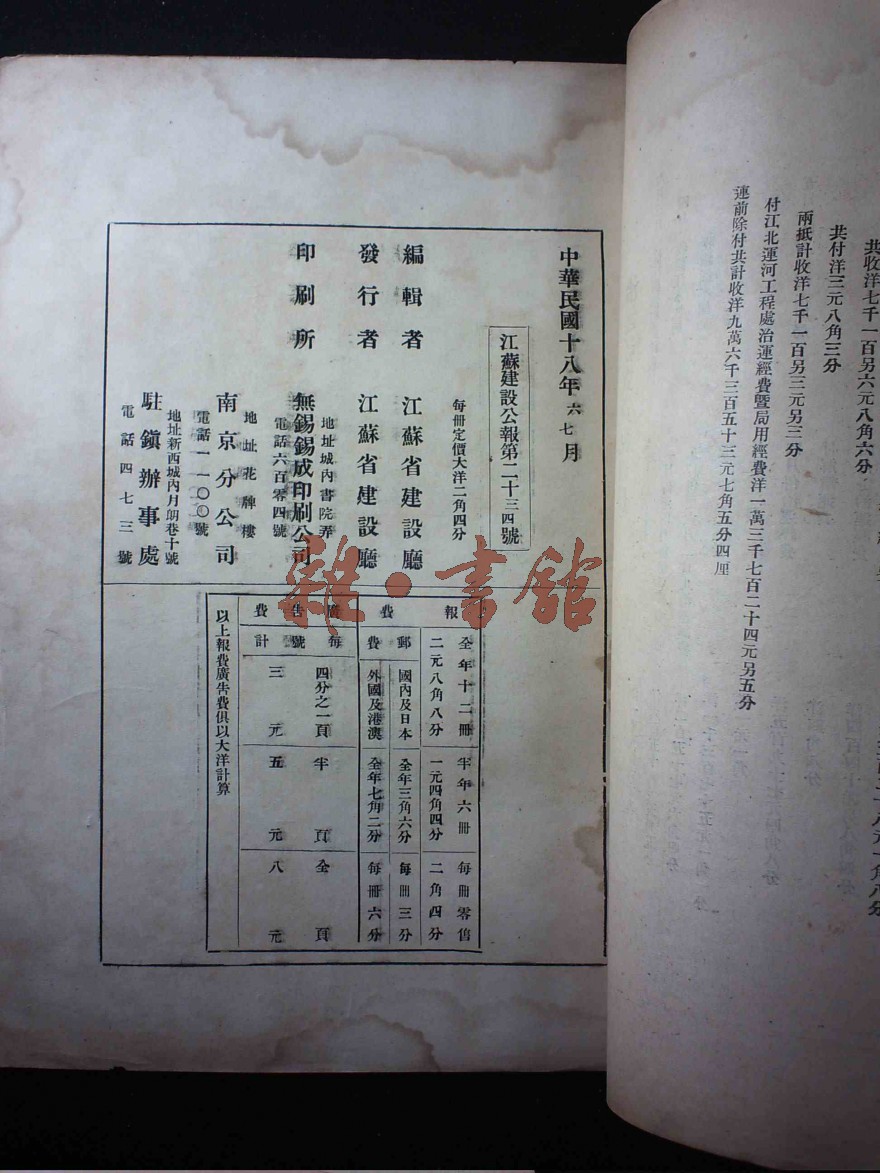 共收洋七千一百另六元八角六分
共付洋三元八角三分
兩抵計收洋七千一百另三元另三分
付江北運河工程處治運經費曁局用經費洋一萬三千七百二十四元另五分
連前除付共計收洋九萬六千三百五十三元七角五分四厘
中華民國十八年六七月
江蘇建設公報第二十三四號
每冊定價大洋二角四分
編輯者 江蘇省建設廳
發行者 江蘇省建設廳
印刷所 無錫錫成印刷公司
地址城內書院弄
電話六百零四號
南京分公司
地址花牌樓
電話一一〇〇號
駐鎭辦事處
地址新西城內月朗巷十號
電話四七三號
報費
全年十二冊 半年六冊 每冊零售
二元八角八分 一元四角四分 二角四分
郵費
國內及日本 全年三角六分 每冊三分
外國及港澳 全年七角二分 每冊六分
廣告費
每號計
四分之一頁 半頁 全頁
三元 五元 八元
以上報費廣告費俱以大洋計算
雜·書館